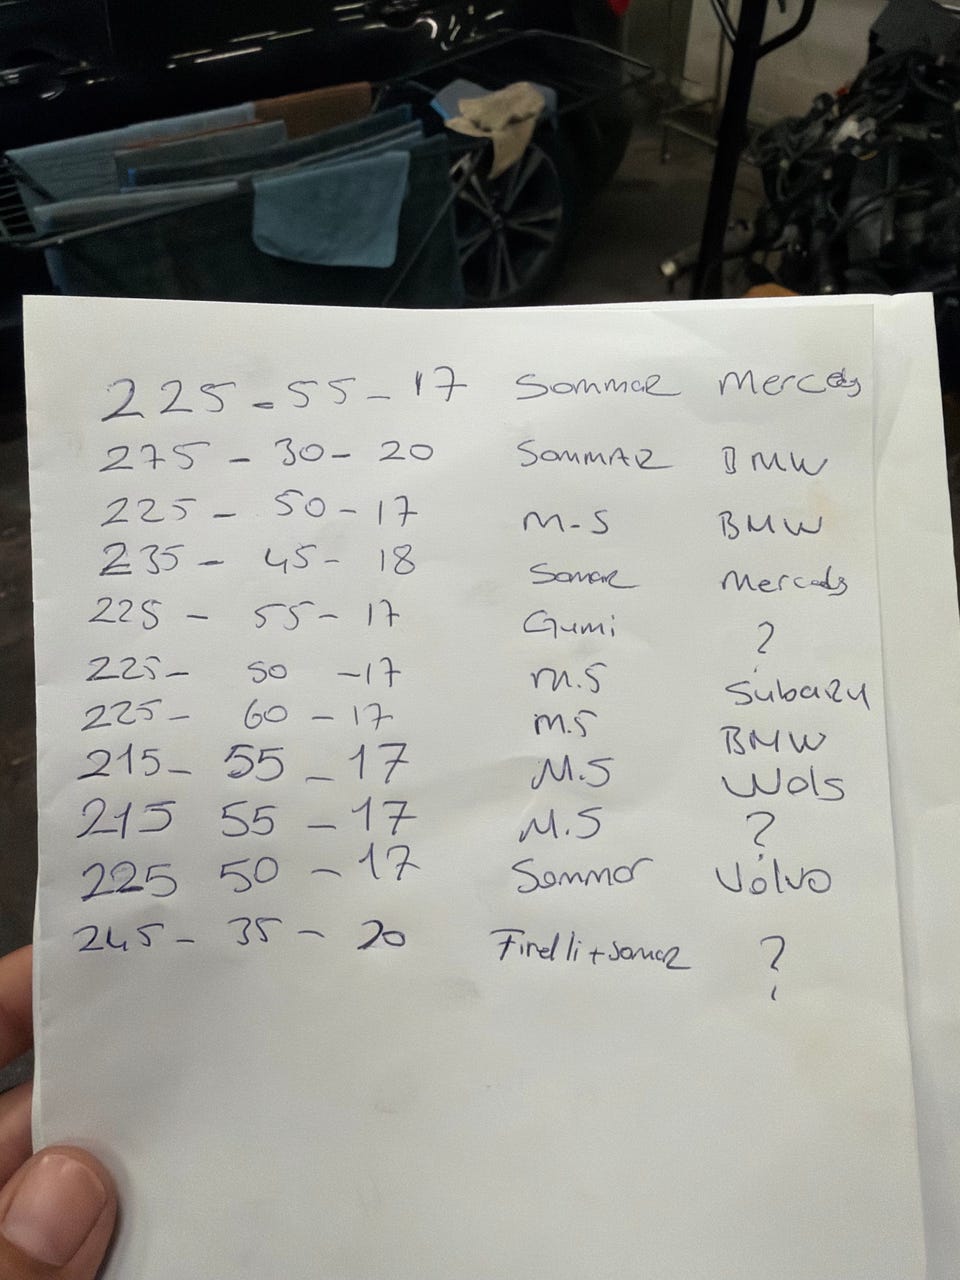 225-55-17 Sommar Merceds
275-30-20 SommAR BMW
225-50-17 M-S BMW
235-45-18 Somar Merceds
225-55-17 Gumi ?
225-50-17 M.S Subaru
225-60-17 M.S BMW
215-55-17 M.S Wols
215 55-17 M.S ?
225 50-17 Sommor Volvo
245-35-20 Firelli+Somar ?